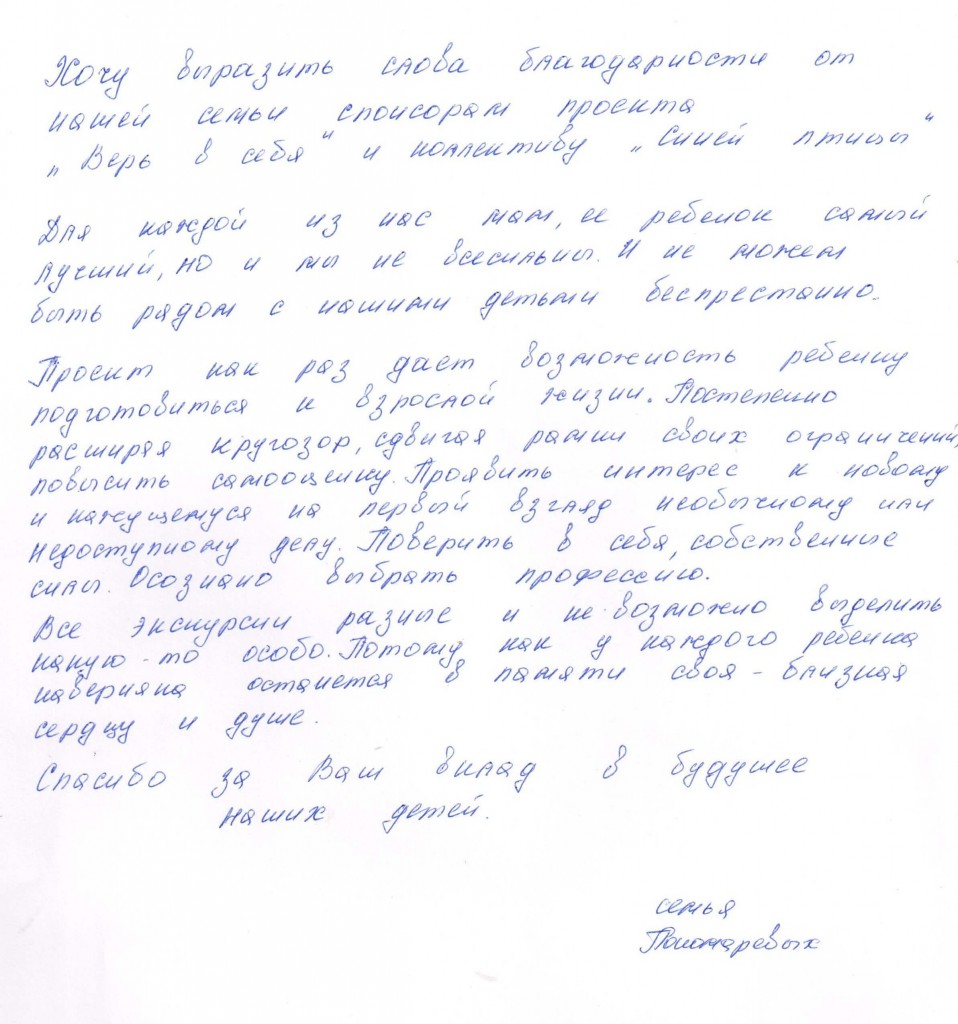 Хочу выразить слова благодарности от
нашей семьи спонсорам проекта
„Верь в себя" и коллективу „Синей птицы"
Для каждой из нас мам, ее ребенок самый
лучший, но и мы не всесильны. И не можем
быть рядом с нашими детьми беспрестанно.
Проект как раз дает возможность ребенку
подготовиться к взрослой жизни. Постепенно
расширяя кругозор, сдвигая рамки своих ограничений,
повысить самооценку. Проявить интерес к новому
и кажущемуся на первый взгляд необычному или
недоступному делу. Поверить в себя, собственные
силы. Осознано выбрать профессию.
Все экскурсии разные и не возможно выделить
какую-то особо. Потому как у каждого ребенка
наверняка останется в памяти своя - близкая
сердцу и душе.
Спасибо за Ваш вклад в будущее
наших детей.
семья
Пономаревых